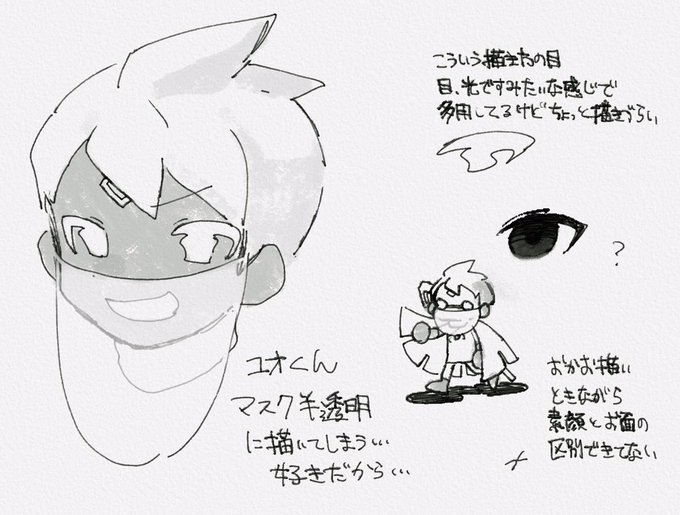 こういう描き方の目
目、光ですみたいな感じで
多用してるけどちょっと描きづらい
?
ユオくん
マスク半透明
に描いてしまう…
好きだから…
おかお描い
ときながら
素顔とお面の
区別できてない